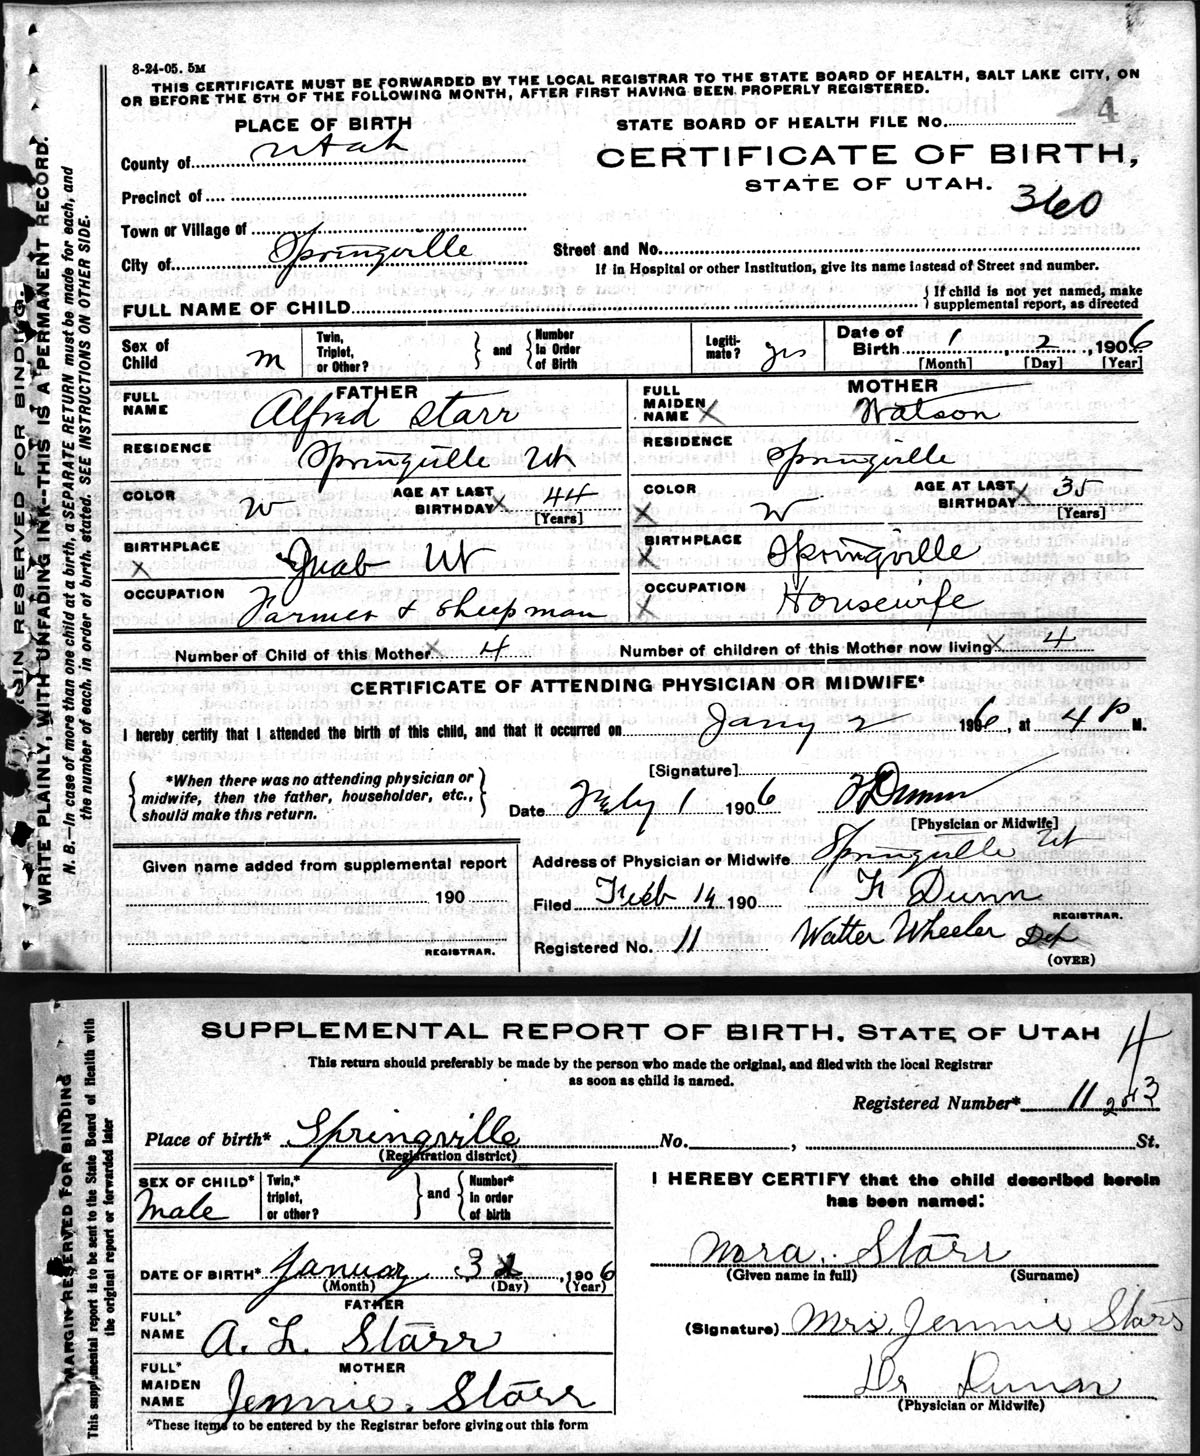 8-24-05. 5M
THIS CERTIFICATE MUST BE FORWARDED BY THE LOCAL REGISTRAR TO THE STATE BOARD OF HEALTH, SALT LAKE CITY, ON
OR BEFORE THE 5TH OF THE FOLLOWING MONTH, AFTER FIRST HAVING BEEN PROPERLY REGISTERED.
PLACE OF BIRTH
STATE BOARD OF HEALTH FILE No. 4
County of Utah
CERTIFICATE OF BIRTH,
STATE OF UTAH.
360
Precinct of
Town or Village of
City of Springville
Street and No.
If in Hospital or other Institution, give its name instead of Street and number.
FULL NAME OF CHILD
If child is not yet named, make
supplemental report, as directed
Sex of Child m
Twin, Triplet, or Other?
and
Number in Order of Birth
Legitimate? yes
Date of Birth 1, 2, 1906
[Month] [Day] [Year]
FATHER
FULL NAME Alfred Starr
MOTHER
FULL MAIDEN NAME X Watson
RESIDENCE Springville Ut
RESIDENCE Springville
COLOR W
AGE AT LAST BIRTHDAY X 44 [Years]
COLOR X W
AGE AT LAST BIRTHDAY X 35 [Years]
BIRTHPLACE X Juab Ut
BIRTHPLACE X Springville
OCCUPATION Farmer & Sheepman
OCCUPATION X Housewife
Number of Child of this Mother X 4
Number of children of this Mother now living X 4
CERTIFICATE OF ATTENDING PHYSICIAN OR MIDWIFE*
I hereby certify that I attended the birth of this child, and that it occurred on Jany 2 1906, at 4 P M.
*When there was no attending physician or
midwife, then the father, householder, etc.,
should make this return.
[Signature]
Date Feby 1 1906 F Dunn
[Physician or Midwife]
Given name added from supplemental report
190
REGISTRAR.
Address of Physician or Midwife Springville Ut
Filed Feb 14 190 F Dunn
REGISTRAR.
Registered No. 11 Walter Wheeler Dep
(OVER)
MARGIN RESERVED FOR BINDING.
WRITE PLAINLY, WITH UNFADING INK--THIS IS A PERMANENT RECORD.
N. B.—In case of more than one child at a birth, a SEPARATE RETURN must be made for each, and
the number of each, in order of birth, stated. SEE INSTRUCTIONS ON OTHER SIDE.
SUPPLEMENTAL REPORT OF BIRTH. STATE OF UTAH
4
This return should preferably be made by the person who made the original, and filed with the local Registrar
as soon as child is named.
Registered Number* 11
Place of birth* Springville No. , St.
(Registration district)
SEX OF CHILD* Male
Twin,* triplet, or other?
and
Number* in order of birth
I HEREBY CERTIFY that the child described herein
has been named:
DATE OF BIRTH* January 3 1906
(Month) (Day) (Year)
Mora. Starr
(Given name in full) (Surname)
FATHER
FULL* NAME A. L. Starr
(Signature) Mrs. Jennie Starr
MOTHER
FULL* MAIDEN NAME Jennie. Starr
Dr Dunn
(Physician or Midwife)
*These items to be entered by the Registrar before giving out this form
MARGIN RESERVED FOR BINDING
This supplemental report is to be sent to the State Board of Health with
the original report or forwarded later